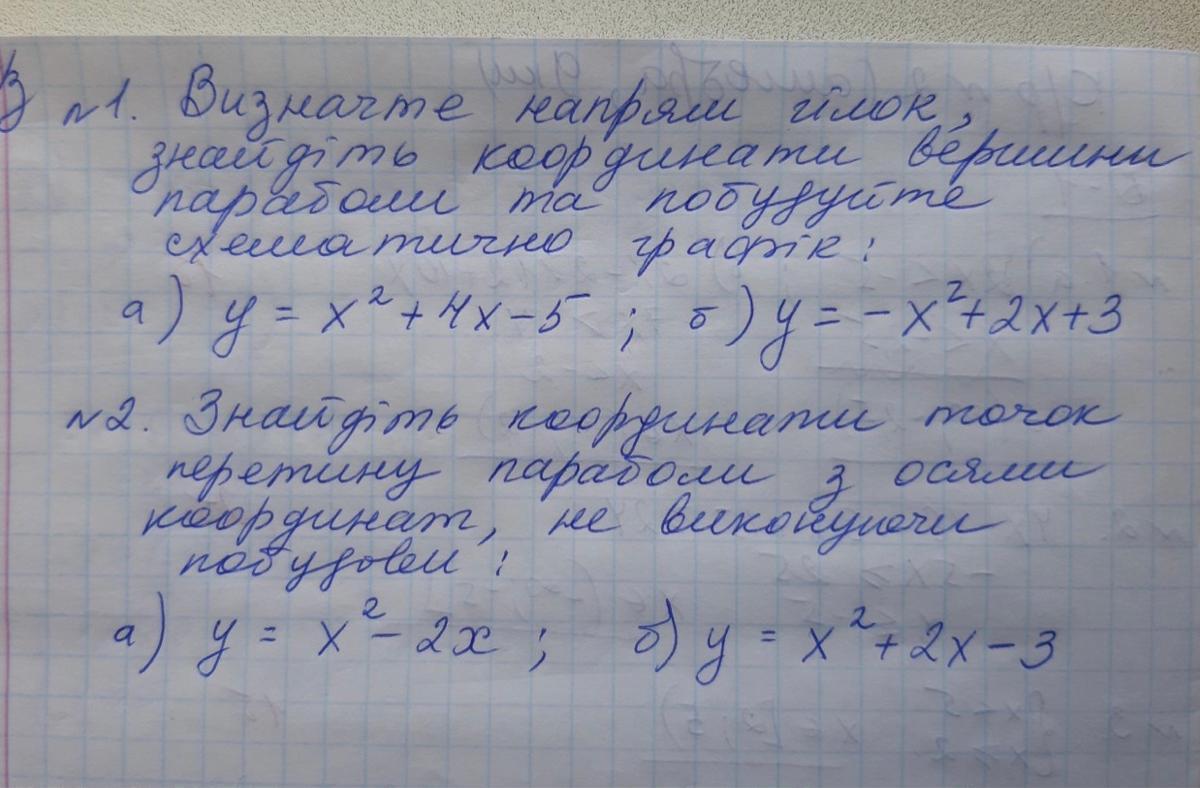 №1. Визначте напрям гілок,
знайдіть координати вершини
параболи та побудуйте
схематично графік:
а) y = x² + 4x - 5 ; б) y = - x² + 2x + 3
№2. Знайдіть координати точок
перетину параболи з осями
координат, не виконуючи
побудови:
а) y = x² - 2x ; б) y = x² + 2x - 3